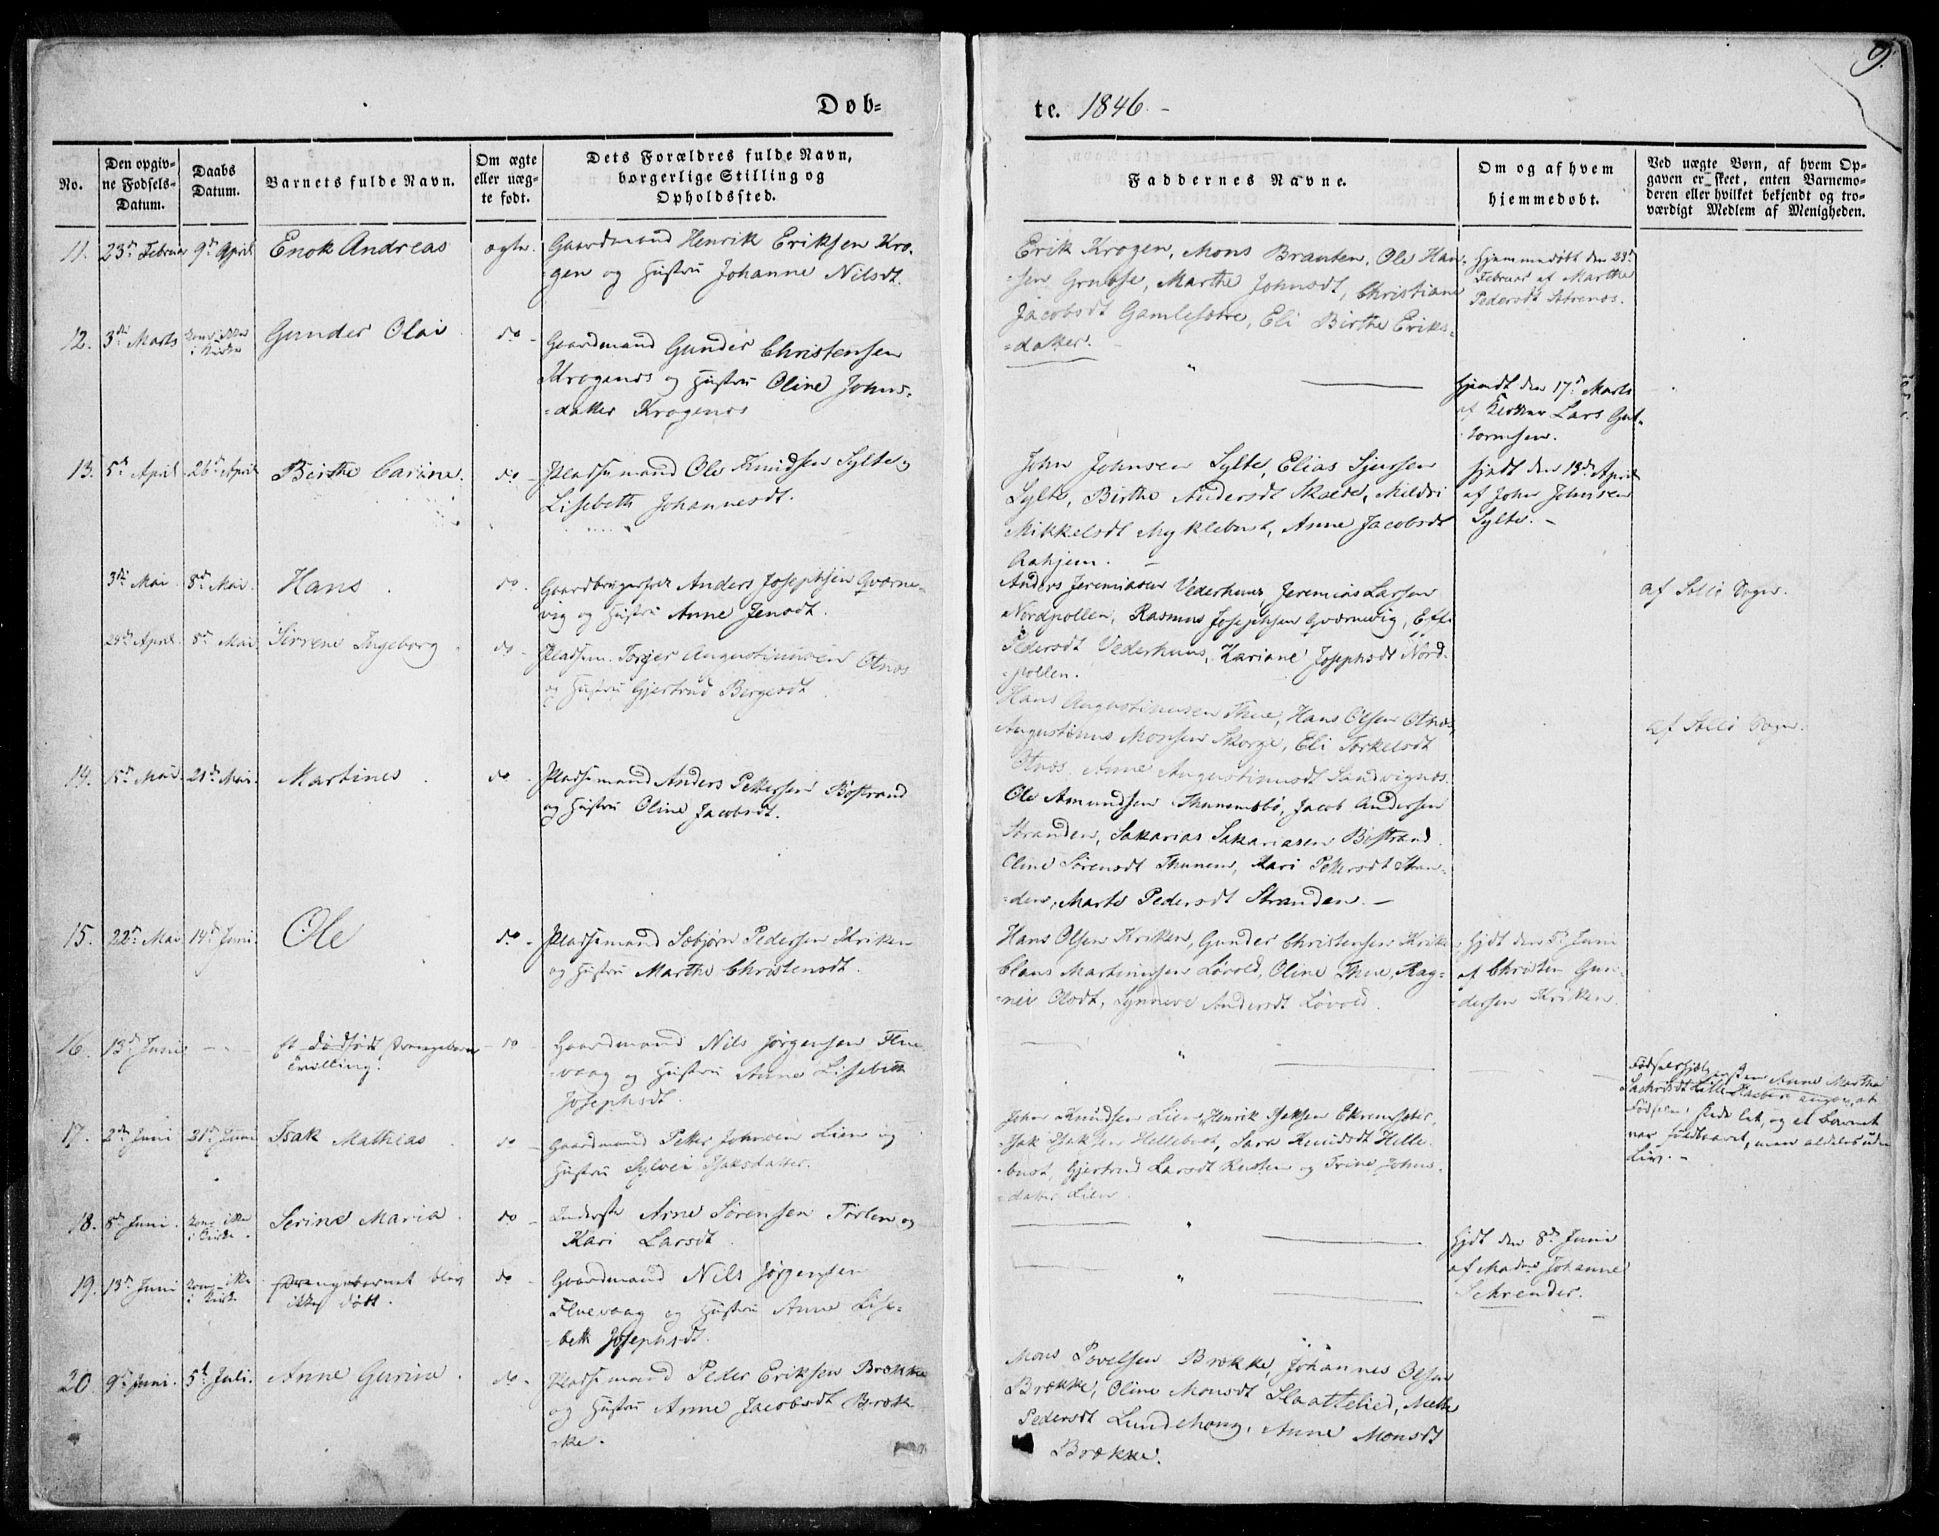 9.
Døb-
te. 1846.
No.
Den opgiv-
ne Fødsels-
Datum.
Daabs
Datum.
Barnets fulde Navn.
Om ægte
eller uæg-
te født.
Dets Forældres fulde Navn,
borgerlige Stilling og
Opholdssted.
Faddernes Navne.
Om og af hvem
hjemmedøbt.
Ved uægte Børn, af hvem Op-
gaven er skeet, enten Barnemo-
deren eller hvilket bekjendt og tro-
værdigt Medlem af Menigheden.
11. 23de Februar 9de April Enok Andreas ægte.
Gaardmand Henrik Eriksen Kro-
gen og Hustru Johanne Nilsdt.
Erik Krogen, Mons Brauten, Ole Han-
sen Grubse, Marthe Johnsdt, Christiane
Jacobsdt Gamlesætre, Eli Birthe Eriks-
datter.
Hjemmedøbt den 23de
Februar af Marthe
Pedersdt
12. 3die Marts kom ikke
i Kirke
Gunder Olai do
Gaardmand Gunder Christensen
Krogenes og Hustru Oline Johns-
datter Krogenes
"
Hjemdt den 17de Marts
af Kirkesr Lars Gut-
tormsen.
13. 5te April 26de April Birthe Carine. do
Pladsemand Ole Knudsen Sylte og
Lisebeth Johannesdt.
John Johnsen Sylte, Elias Sjursen
Sylte, Birthe Andersdt Skeide, Mildri
Mikkelsdt Myklebust, Anne Jacobsdt
Aahjem.
Hjdt den 13de April
af John Johnsen
Sylte.
3die Mai 8de Mai Hans do
Gaardbrugerfolk Anders Josephsen Qværne-
vig og Hustru Anne Jensdt.
Anders Jeremiasen Vederhuus, Jeremias Larsen
Nordpollen, Rasmus Josephsen Qværnevig,
Pedersdt Vederhuus, Kariane Josephsdt Nord-
pollen.
af Sellø Sogn.
April 8de Mai Sirrene Ingeborg do
Pladsem. Torger Augustinusen Otnæs
og Hustru Gjertrud Bergesdt
Hans Augustinusen Thue, Hans Olsen Otnæs,
Augustinus Monsen Skorge, Eli Torkelsdt
Otnæs, Anne Augustinusdt Sandvignæs.
af Sellø Sogn.
14. 15de Mai 21de Mai Martines do
Pladsemand Anders Pettersen Bøstrand
og Hustru Oline Jacobsdt.
Ole Amundsen Thunemsbø, Jacob Andersen
Stranden, Sakarias Sakariasen Bøstrand
Oline Sørensdt Thunem, Kari Pettersdt Stran-
den, Marte Pedersdt Stranden.
15. 22de Mai 14de Juni Ole do
Pladsemand Sæbjørn Pedersen Kriken
og Hustru Marthe Christensdt.
Hans Olsen Kriken, Gunder Christensen Krike
Claus Martinusen Løvold, Oline Thue, Rag-
nei Olsdt, Synneve Andersdt Løvold.
Hjdt den 5te Juni
af Christen Gun-
dersen Kriken.
16. 13de Juni
et dødfødt Drengebarn
Tvilling.
do
Gaardmand Nils Jørgensen Flue-
vaag og Hustru Anne Lisebeth
Josephsdt.
"
Fødselshjælpersken Anne Martha
Lille angav, at
Fødselen skede let, og at Barnet
var fuldbaaret, men aldeles uden
Liv.
17. 2de Juni 21de Juni Isak Mathias do
Gaardmand Petter Johnsen Lien og
Hustru Sylvei Isaksdatter.
John Knudsen Lien, Henrik Isaksen Ekremsæter,
Isak Isaksen Hellebust, Sara Knudsdt Helle-
bust, Gjertrud Larsdt Rusten og Trine Johns-
datter Lien.
18. 8de Juni kom ikke
i Kirke.
Serine Maria do
Inderste Arne Sørensen Førlen og
Kari Larsdt.
"
Hjdt den 8de Juni
af Mada Johanne
Schrender.
19. 13de Juni kom ikke
i Kirke
Drengebarnet blev
ikke døbt.
do
Gaardmand Nils Jørgensen
Fluevaag og Hustru Anne Lise-
beth Josephsdt.
"
20. 9de Juni 5te Juli Anne Gurine do
Pladsemand Peder Eriksen Brække
og Hustru Anne Jacobsdt Bræk-
ke.
Mons Povelsen Brække, Johannes Olsen
Brække, Oline Monsdt Slaattelied, Mette
Pedersdt Lundehaug, Anne Monsdt
Brække.